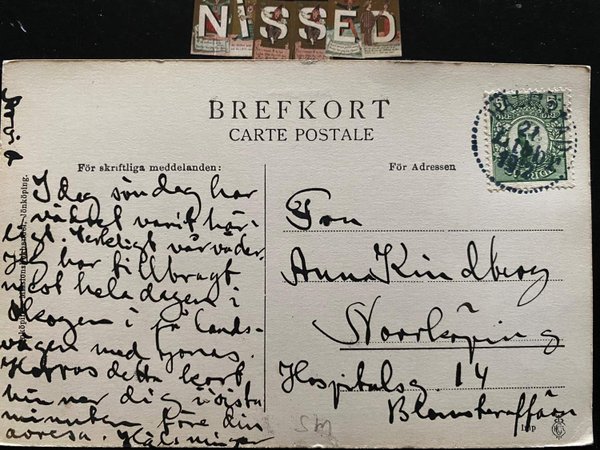 NISSED
BREFKORT
CARTE POSTALE
För skriftliga meddelanden:
För Adressen
I dag söndag har
vädret varit här-
ligt. Verkligt vårväder.
Jag har tillbragt
mest hela dagen i
skogen i på lands-
vägen med
Hoppas detta kort
hinner dig i sista
minuten före din
avresa. Hälsningar
Frn
Anna Kindberg
Norrköping
Hospitalsg. 14
Blomsteraffär
Jönköping.
5
21